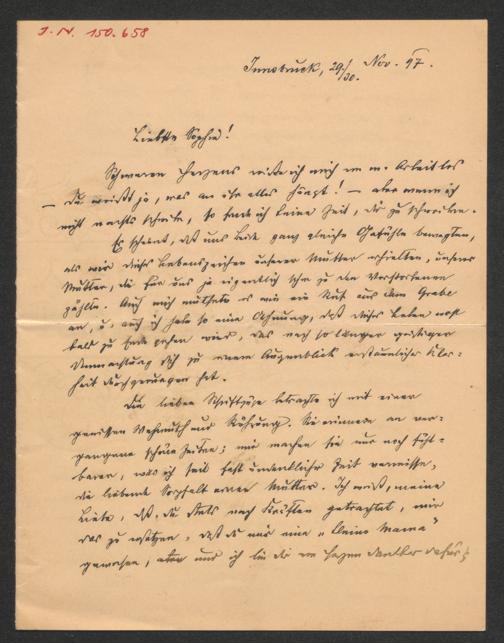 I. N. 150.658
Innsbruck, 29./30. Nov. 97.
Liebste Sophie!
Schweren Herzens reiße ich mich von m. Arbeit los
– Du weißt ja, was an ihr alles hängt! – aber wenn ich
nicht nachts schreibe, so finde ich keine Zeit, Dir zu schreiben.
Es scheint, daß uns beide ganz gleiche Gefühle bewegten,
als wir dieses Lebenszeichen unserer Mutter erhielten, unserer
Mutter, die für uns ja eigentlich schon zu den Verstorbenen
zählte. Auch mich muthete es wie ein Ruf aus dem Grabe
an, u. auch ich habe so eine Ahnung, daß dieses Leben wohl
bald zu Ende gehen wird, das nach so langer geistiger
Umnachtung sich zu einem Augenblick erstaunlicher Klar-
heit durchgerungen hat.
Die lieben Schriftzüge betrachte ich mit einer
gewissen Wehmuth und Rührung. Sie erinnern an ver-
gangene schöne Zeiten; mir machen sie nur noch fühl-
barer, was ich seit fast undenklicher Zeit vermisse,
die liebende Sorgfalt einer Mutter. Ich weiß, meine
Liebe, daß Du stets nach Kräften getrachtet, mir
das zu ersetzen, daß Du mir eine „kleine Mama"
gewesen, und ich bin Dir im Herzen dankbar dafür;